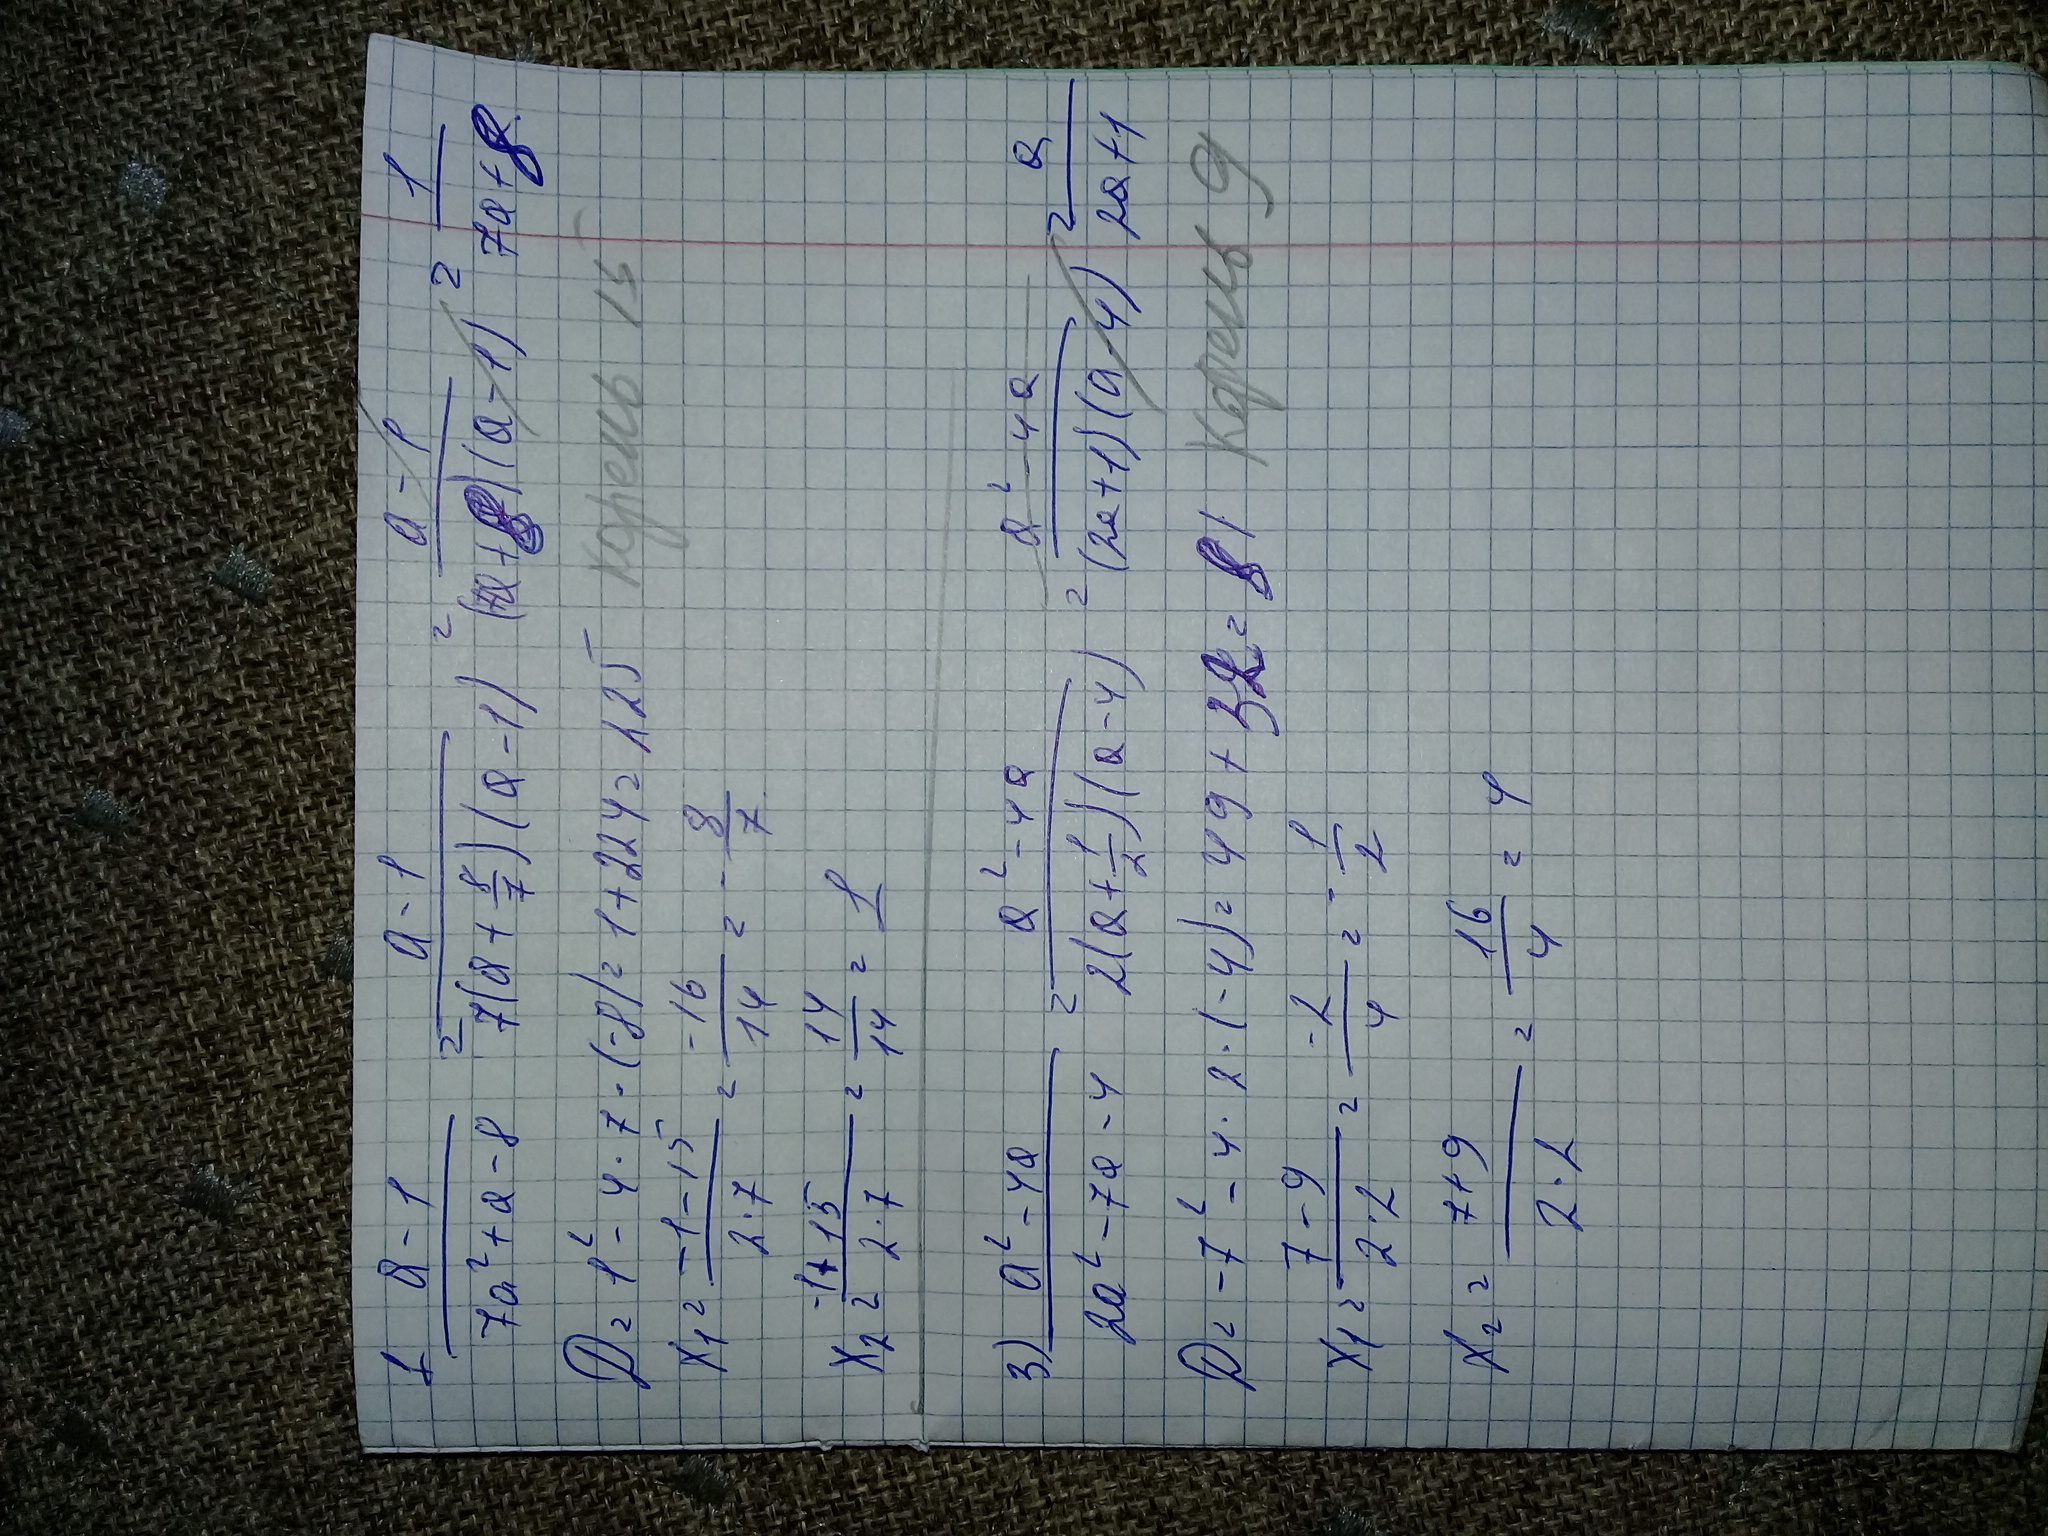 1 (a-1)/(7a²+a-8) = (a-1)/(7(a+8/7)(a-1)) = (a-1)/((7a+8)(a-1)) = 1/(7a+8)
D = 1² - 4·7·(-8) = 1+224 = 225 корень 15
x₁ = (-1-15)/(2·7) = -16/14 = -8/7
x₂ = (-1+15)/(2·7) = 14/14 = 1
3) (a²-4a)/(2a²-7a-4) = (a²-4a)/(2(a+1/2)(a-4)) = (a²-4a)/((2a+1)(a-4)) = a/(2a+1)
D = -7² - 4·2·(-4) = 49+32 = 81 корень 9
x₁ = (7-9)/(2·2) = -2/4 = -1/2
x₂ = (7+9)/(2·2) = 16/4 = 4